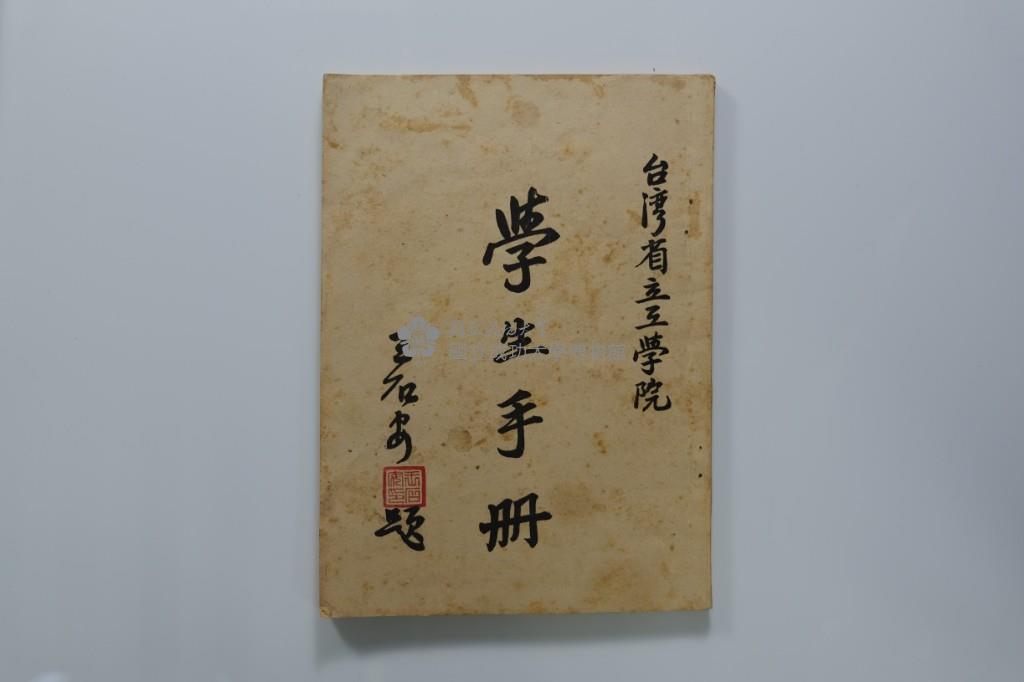 台湾省立工學院
學生手冊
王石安題
王石安印
國立成功大學博物館